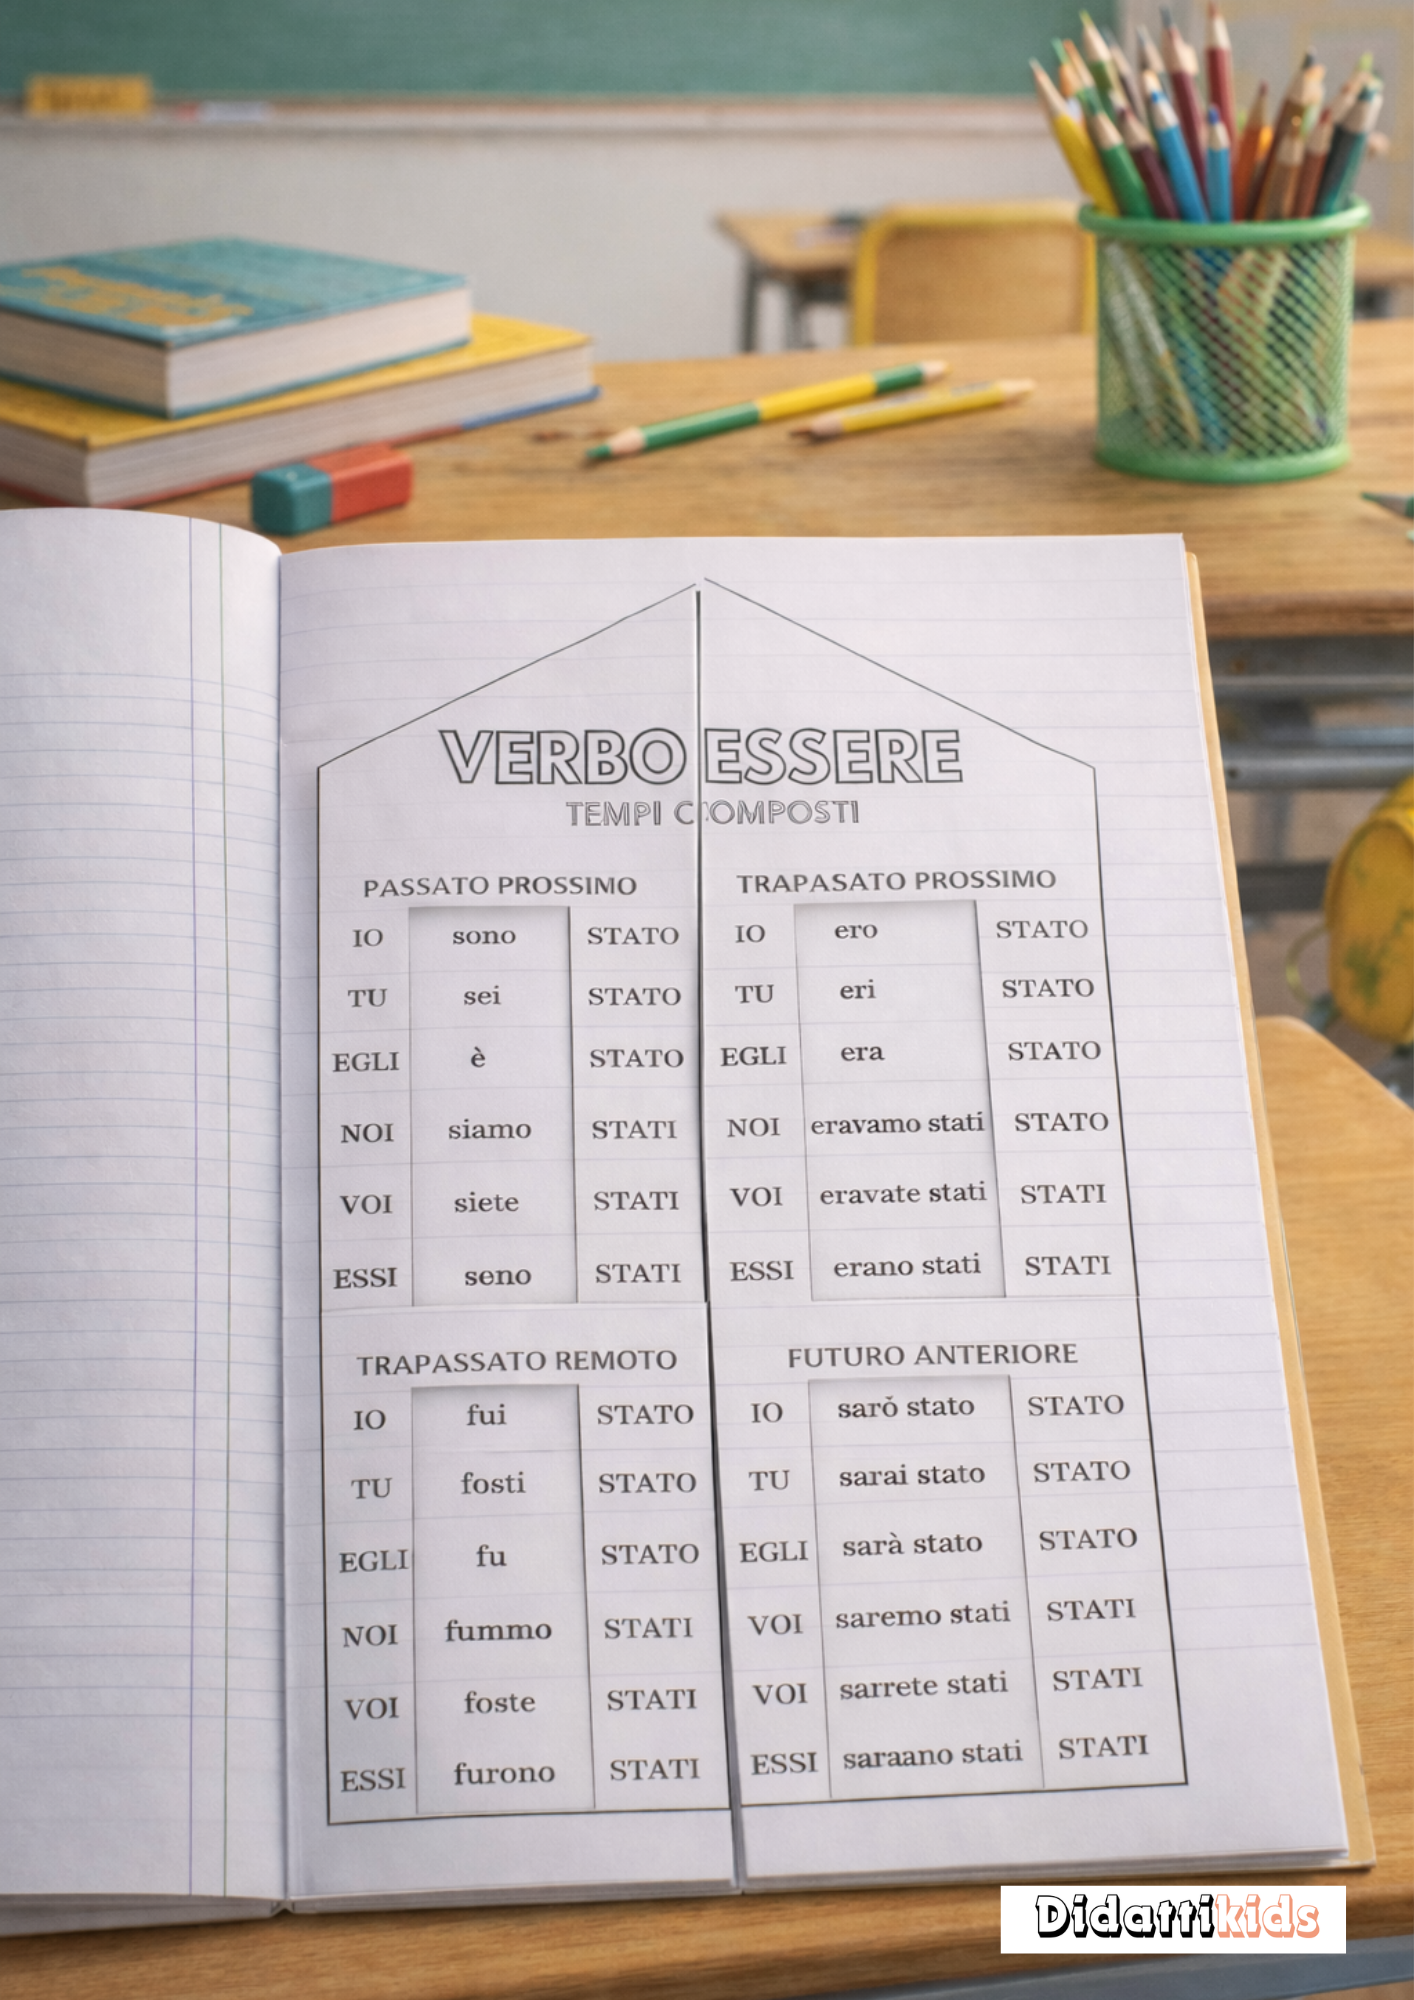 VERBO ESSERE
TEMPI COMPOSTI
PASSATO PROSSIMO
IO sono STATO
TU sei STATO
EGLI è STATO
NOI siamo STATI
VOI siete STATI
ESSI seno STATI
TRAPASATO PROSSIMO
IO ero STATO
TU eri STATO
EGLI era STATO
NOI eravamo stati STATO
VOI eravate stati STATI
ESSI erano stati STATI
TRAPASSATO REMOTO
IO fui STATO
TU fosti STATO
EGLI fu STATO
NOI fummo STATI
VOI foste STATI
ESSI furono STATI
FUTURO ANTERIORE
IO sarǒ stato STATO
TU sarai stato STATO
EGLI sarà stato STATO
VOI saremo stati STATI
VOI sarrete stati STATI
ESSI saraano stati STATI
Didattikids